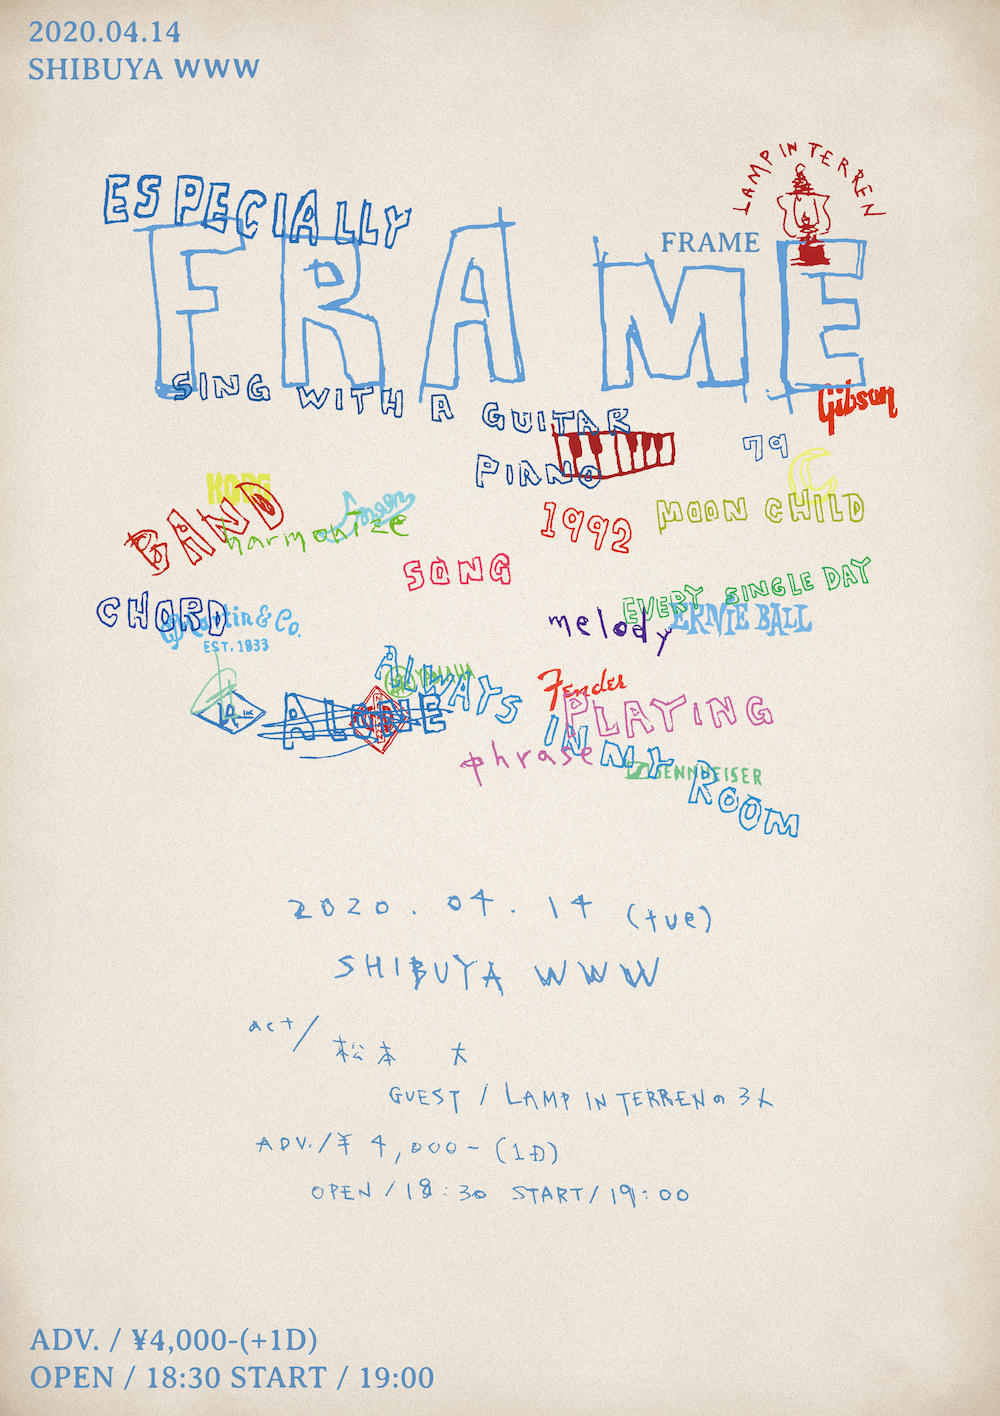 2020.04.14
SHIBUYA WWW
LAMP IN TERREN
ESPECIALLY
FRAME
FRAME
SING WITH A GUITAR
Gibson
79
PIANO
KORG
BAND
harmonize
1992
MOON CHILD
SONG
EVERY SINGLE DAY
CHORD
Martin & Co.
EST. 1833
melody
ERNIE BALL
ALWAYS
YAMAHA
Fender
PLAYING
ALONE
IN MY ROOM
phrase
SENNHEISER
2020.04.14 (tue)
SHIBUYA WWW
act/
松本 大
GUEST / LAMP IN TERRENの3人
ADV./¥4,000-(1D)
OPEN/18:30 START/19:00
ADV. / ¥4,000-(+1D)
OPEN / 18:30 START / 19:00